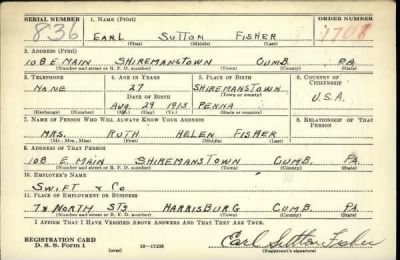 SERIAL NUMBER 1. NAME (Print) ORDER NUMBER
836 EARL SUTTON FISHER
(First) (Middle) (Last)
2. ADDRESS (Print)
108 E. MAIN SHIREMANSTOWN CUMB. PA.
(Number and street or R. F. D. number) (Town) (County) (State)
3. TELEPHONE 4. AGE IN YEARS 5. PLACE OF BIRTH 6. COUNTRY OF CITIZENSHIP
NONE 27 SHIREMANSTOWN
DATE OF BIRTH (Town or county) U.S.A.
AUG. 29 1913 PENNA
(Exchange) (Number) (Mo.) (Day) (Yr.) (State or country)
7. NAME OF PERSON WHO WILL ALWAYS KNOW YOUR ADDRESS 8. RELATIONSHIP OF THAT PERSON
MRS. RUTH HELEN FISHER
(Mr., Mrs., Miss) (First) (Middle) (Last)
9. ADDRESS OF THAT PERSON
108 E. MAIN SHIREMANSTOWN CUMB. PA.
(Number and street or R. F. D. number) (Town) (County) (State)
10. EMPLOYER'S NAME
SWIFT & CO
11. PLACE OF EMPLOYMENT OR BUSINESS
7th NORTH STS HARRISBURG CUMB. PA.
(Number and street or R. F. D. number) (Town) (County) (State)
I AFFIRM THAT I HAVE VERIFIED ABOVE ANSWERS AND THAT THEY ARE TRUE.
REGISTRATION CARD
D. S. S. Form 1 (over) Earl Sutton Fisher
(Registrant's signature)